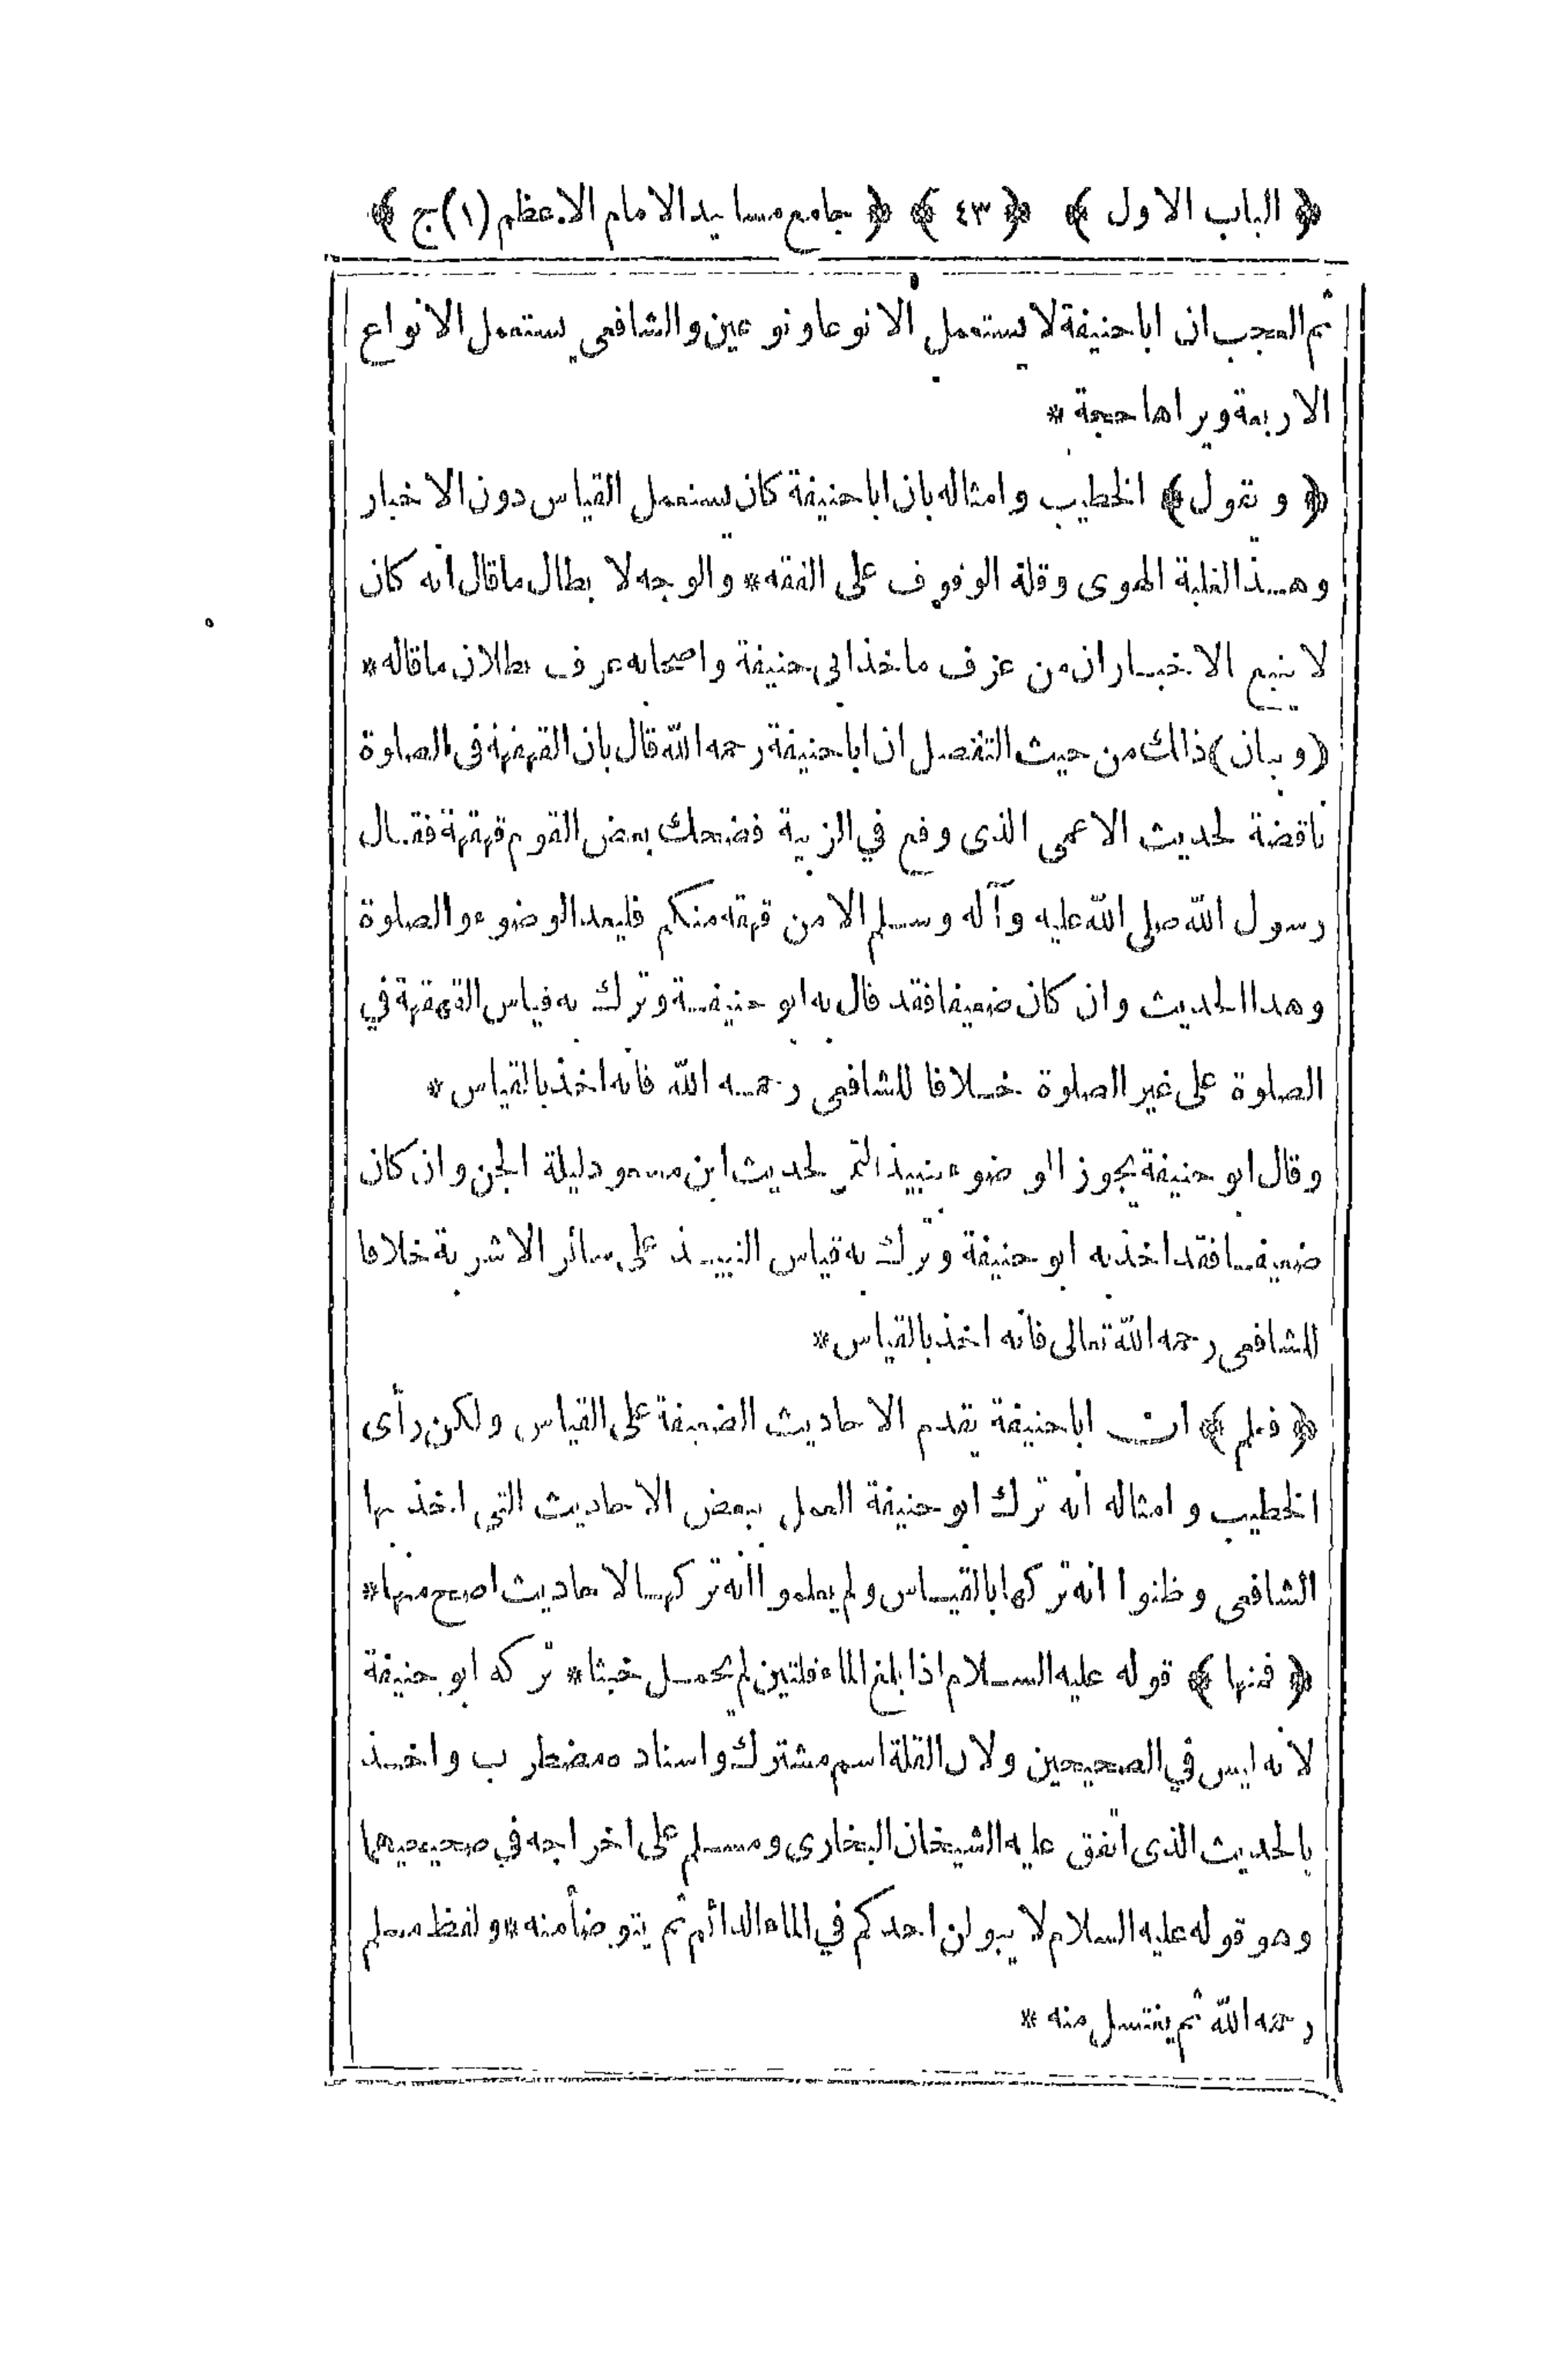 ﴿ الباب الاول ﴾ ﴿ ٤٣ ﴾ ﴿ جامع مسانيد الامام الاعظم (١) ج ﴾
ثم العجب ان ابا حنيفة لا يستعمل الا نوعا ونوعين والشافعي يستعمل الانواع
الاربعة ويراها حجة *
﴿ ويقول ﴾ الخطيب وامثاله بان ابا حنيفة كان يستعمل القياس دون الاخبار
وهذا لغلبة الهوى وقلة الوقوف على الفقه * والوجه لا بطال ما قال انه كان
لا يتبع الاخبار ان من عرف ماخذ ابي حنيفة واصحابه عرف بطلان ما قاله *
(وبيان) ذلك من حيث التفصيل ان ابا حنيفة رحمه الله قال بان القهقهة فى الصلوة
ناقضة لحديث الاعمى الذى وقع في الزبية فضحك بعض القوم قهقهة فقال
رسول الله صلى الله عليه وآله وسلم الا من قهقه منكم فليعد الوضوء والصلوة
وهذا الحديث وان كان ضعيفا فقد قال به ابو حنيفة وترك به قياس القهقهة في
الصلوة على غير الصلوة خلافا للشافعى رحمه الله فانه اخذ بالقياس *
وقال ابو حنيفة يجوز الوضوء بنبيذ التمر لحديث ابن مسعود ليلة الجن وان كان
ضعيفا فقد اخذ به ابو حنيفة وترك به قياس النبيذ على سائر الاشربة خلافا
للشافعى رحمه الله تعالى فانه اخذ بالقياس *
﴿ فعلم ﴾ ان ابا حنيفة يقدم الاحاديث الضعيفة على القياس ولكن رأى
الخطيب وامثاله انه ترك ابو حنيفة العمل ببعض الاحاديث التي اخذ بها
الشافعى وظنوا انه تركها بالقياس ولم يعلموا انه تركها لاحاديث اصح منها *
﴿ فمنها ﴾ قوله عليه السلام اذا بلغ الماء قلتين لم يحمل خبثا * تركه ابو حنيفة
لانه ليس في الصحيحين ولان القلة اسم مشترك واسناده مضطرب واخذ
بالحديث الذى اتفق عليه الشيخان البخارى ومسلم على اخراجه في صحيحيهما
وهو قوله عليه السلام لا يبولن احدكم في الماء الدائم ثم يتوضأ منه * ولفظ مسلم
رحمه الله ثم يغتسل منه *